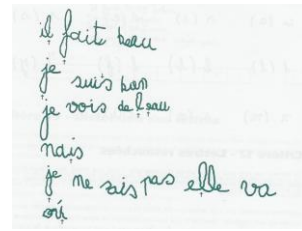 il fait beau
je suis bon
je vois de l'eau
mais
je ne sais pas elle va
où